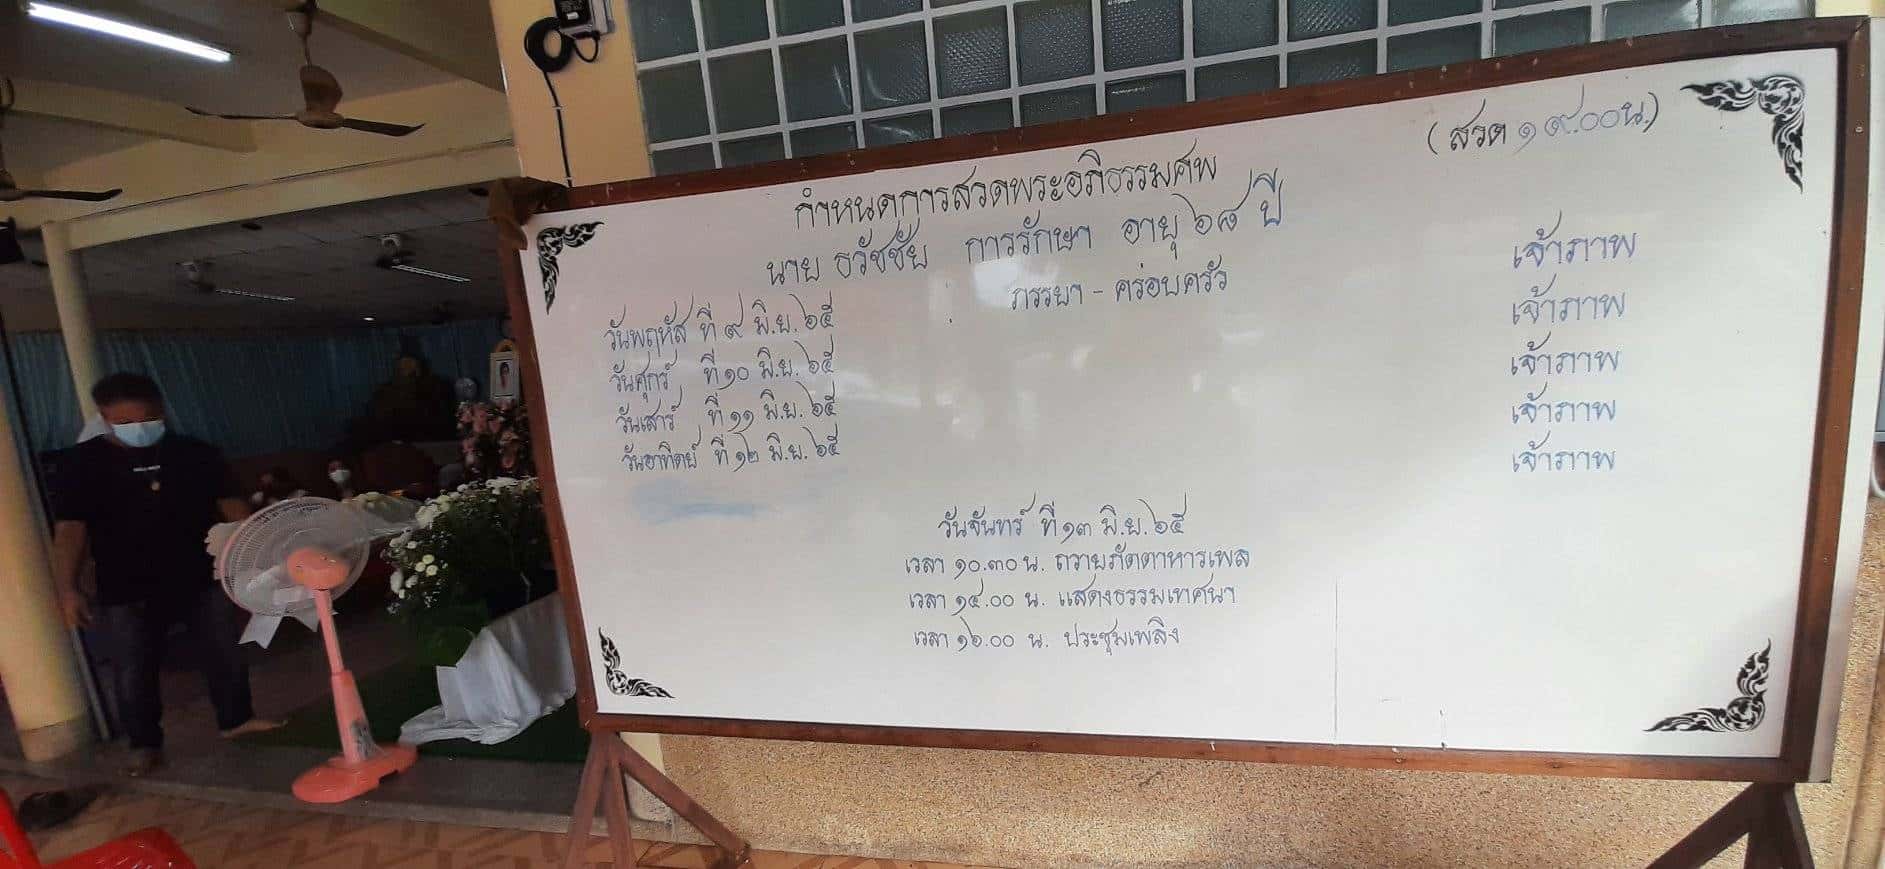 (สวด ๑๙.๐๐น.)
กำหนดการสวดพระอภิธรรมศพ
นาย ธวัชชัย การรักษา อายุ ๖๘ ปี
ภรรยา - ครอบครัว
วันพฤหัส ที่ ๙ มิ.ย. ๖๕ เจ้าภาพ
วันศุกร์ ที่ ๑๐ มิ.ย. ๖๕ เจ้าภาพ
วันเสาร์ ที่ ๑๑ มิ.ย. ๖๕ เจ้าภาพ
วันอาทิตย์ ที่ ๑๒ มิ.ย. ๖๕ เจ้าภาพ
เจ้าภาพ
วันจันทร์ ที่ ๑๓ มิ.ย. ๖๕
เวลา ๑๐.๓๐ น. ถวายภัตตาหารเพล
เวลา ๑๔.๐๐ น. แสดงธรรมเทศนา
เวลา ๑๖.๐๐ น. ประชุมเพลิง